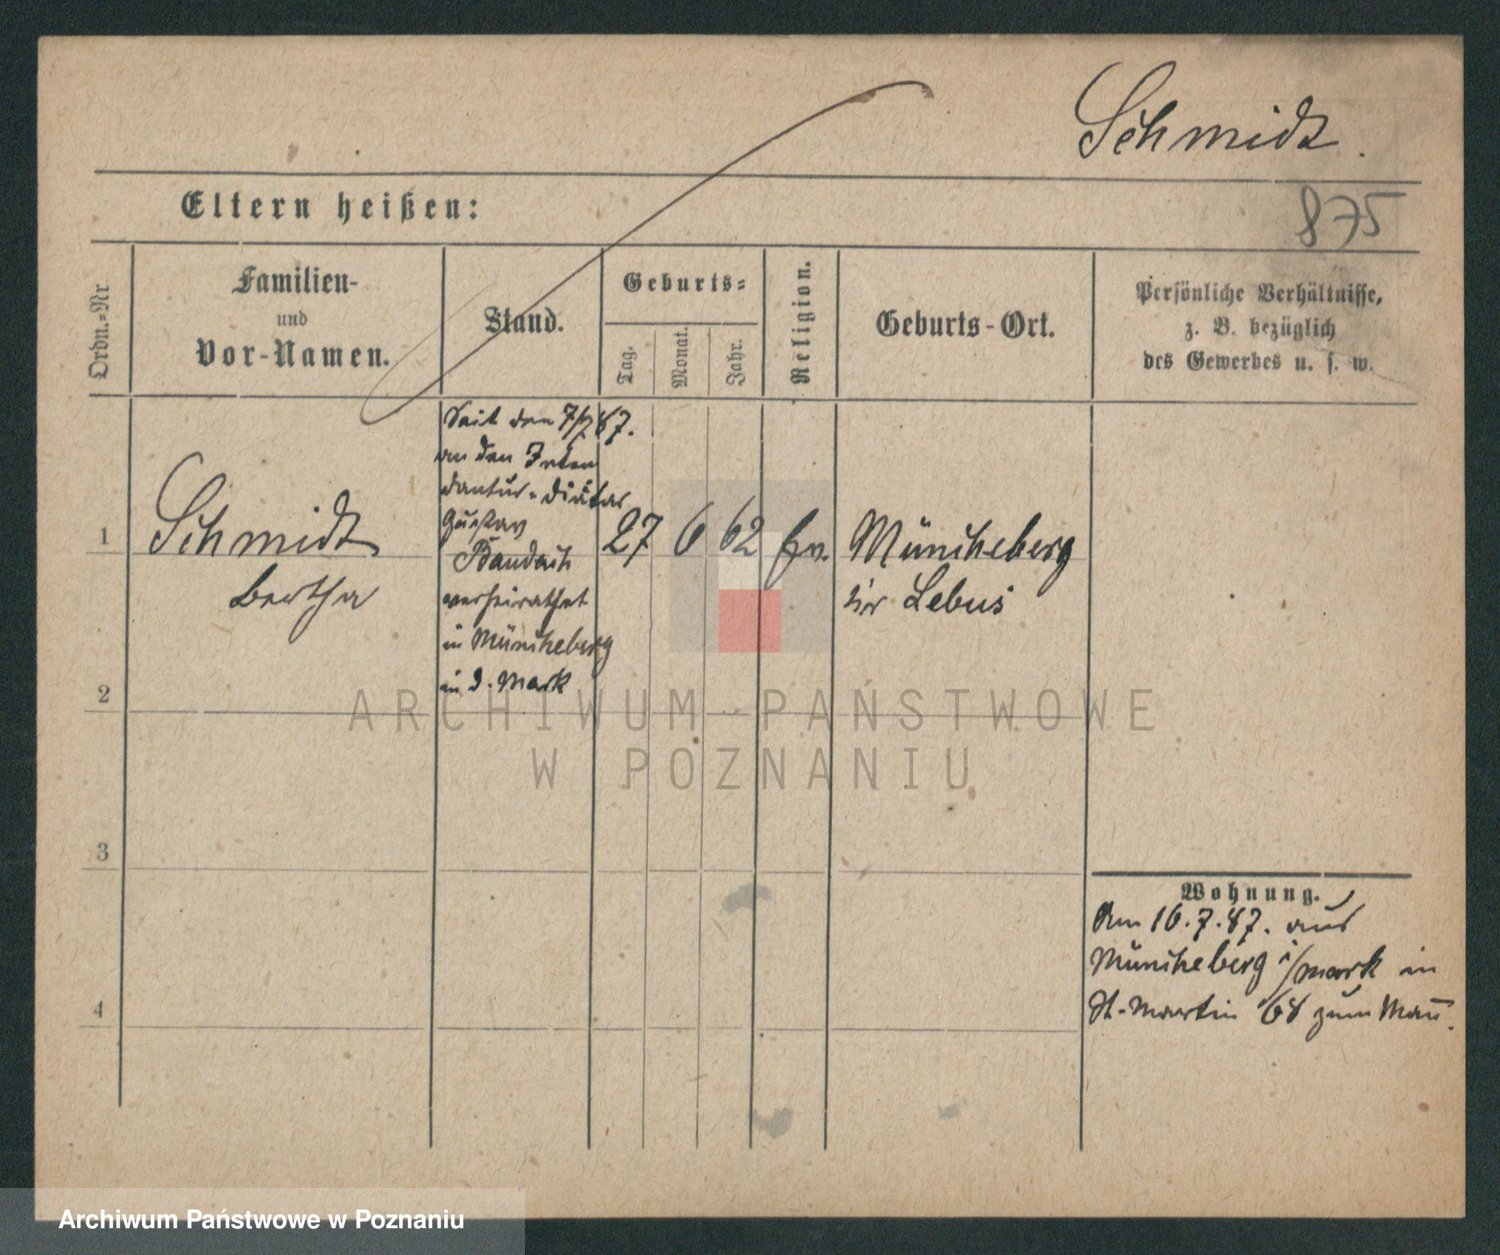 Schmidt.
875
Eltern heißen:
Ordn.-Nr.
Familien-
und
Vor-Namen.
Stand.
Geburts-
Tag.
Monat.
Jahr.
Religion.
Geburts-Ort.
Persönliche Verhältnisse,
z. B. bezüglich
des Gewerbes u. s. w.
1
Schmidt
Bertha
Seit dem 7/7 87.
an den Inten
dantur-Diätar
Gustav
Baudach
verheirathet
in Müncheberg
in d. Mark
27 6 62 ev. Müncheberg
Kr Lebus
2
3
4
Wohnung.
Am 16.7.87. aus
Müncheberg i/Mark in
St. Martin 68 zum Mañ.
ARCHIWUM PAŃSTWOWE
W POZNANIU
Archiwum Państwowe w Poznaniu